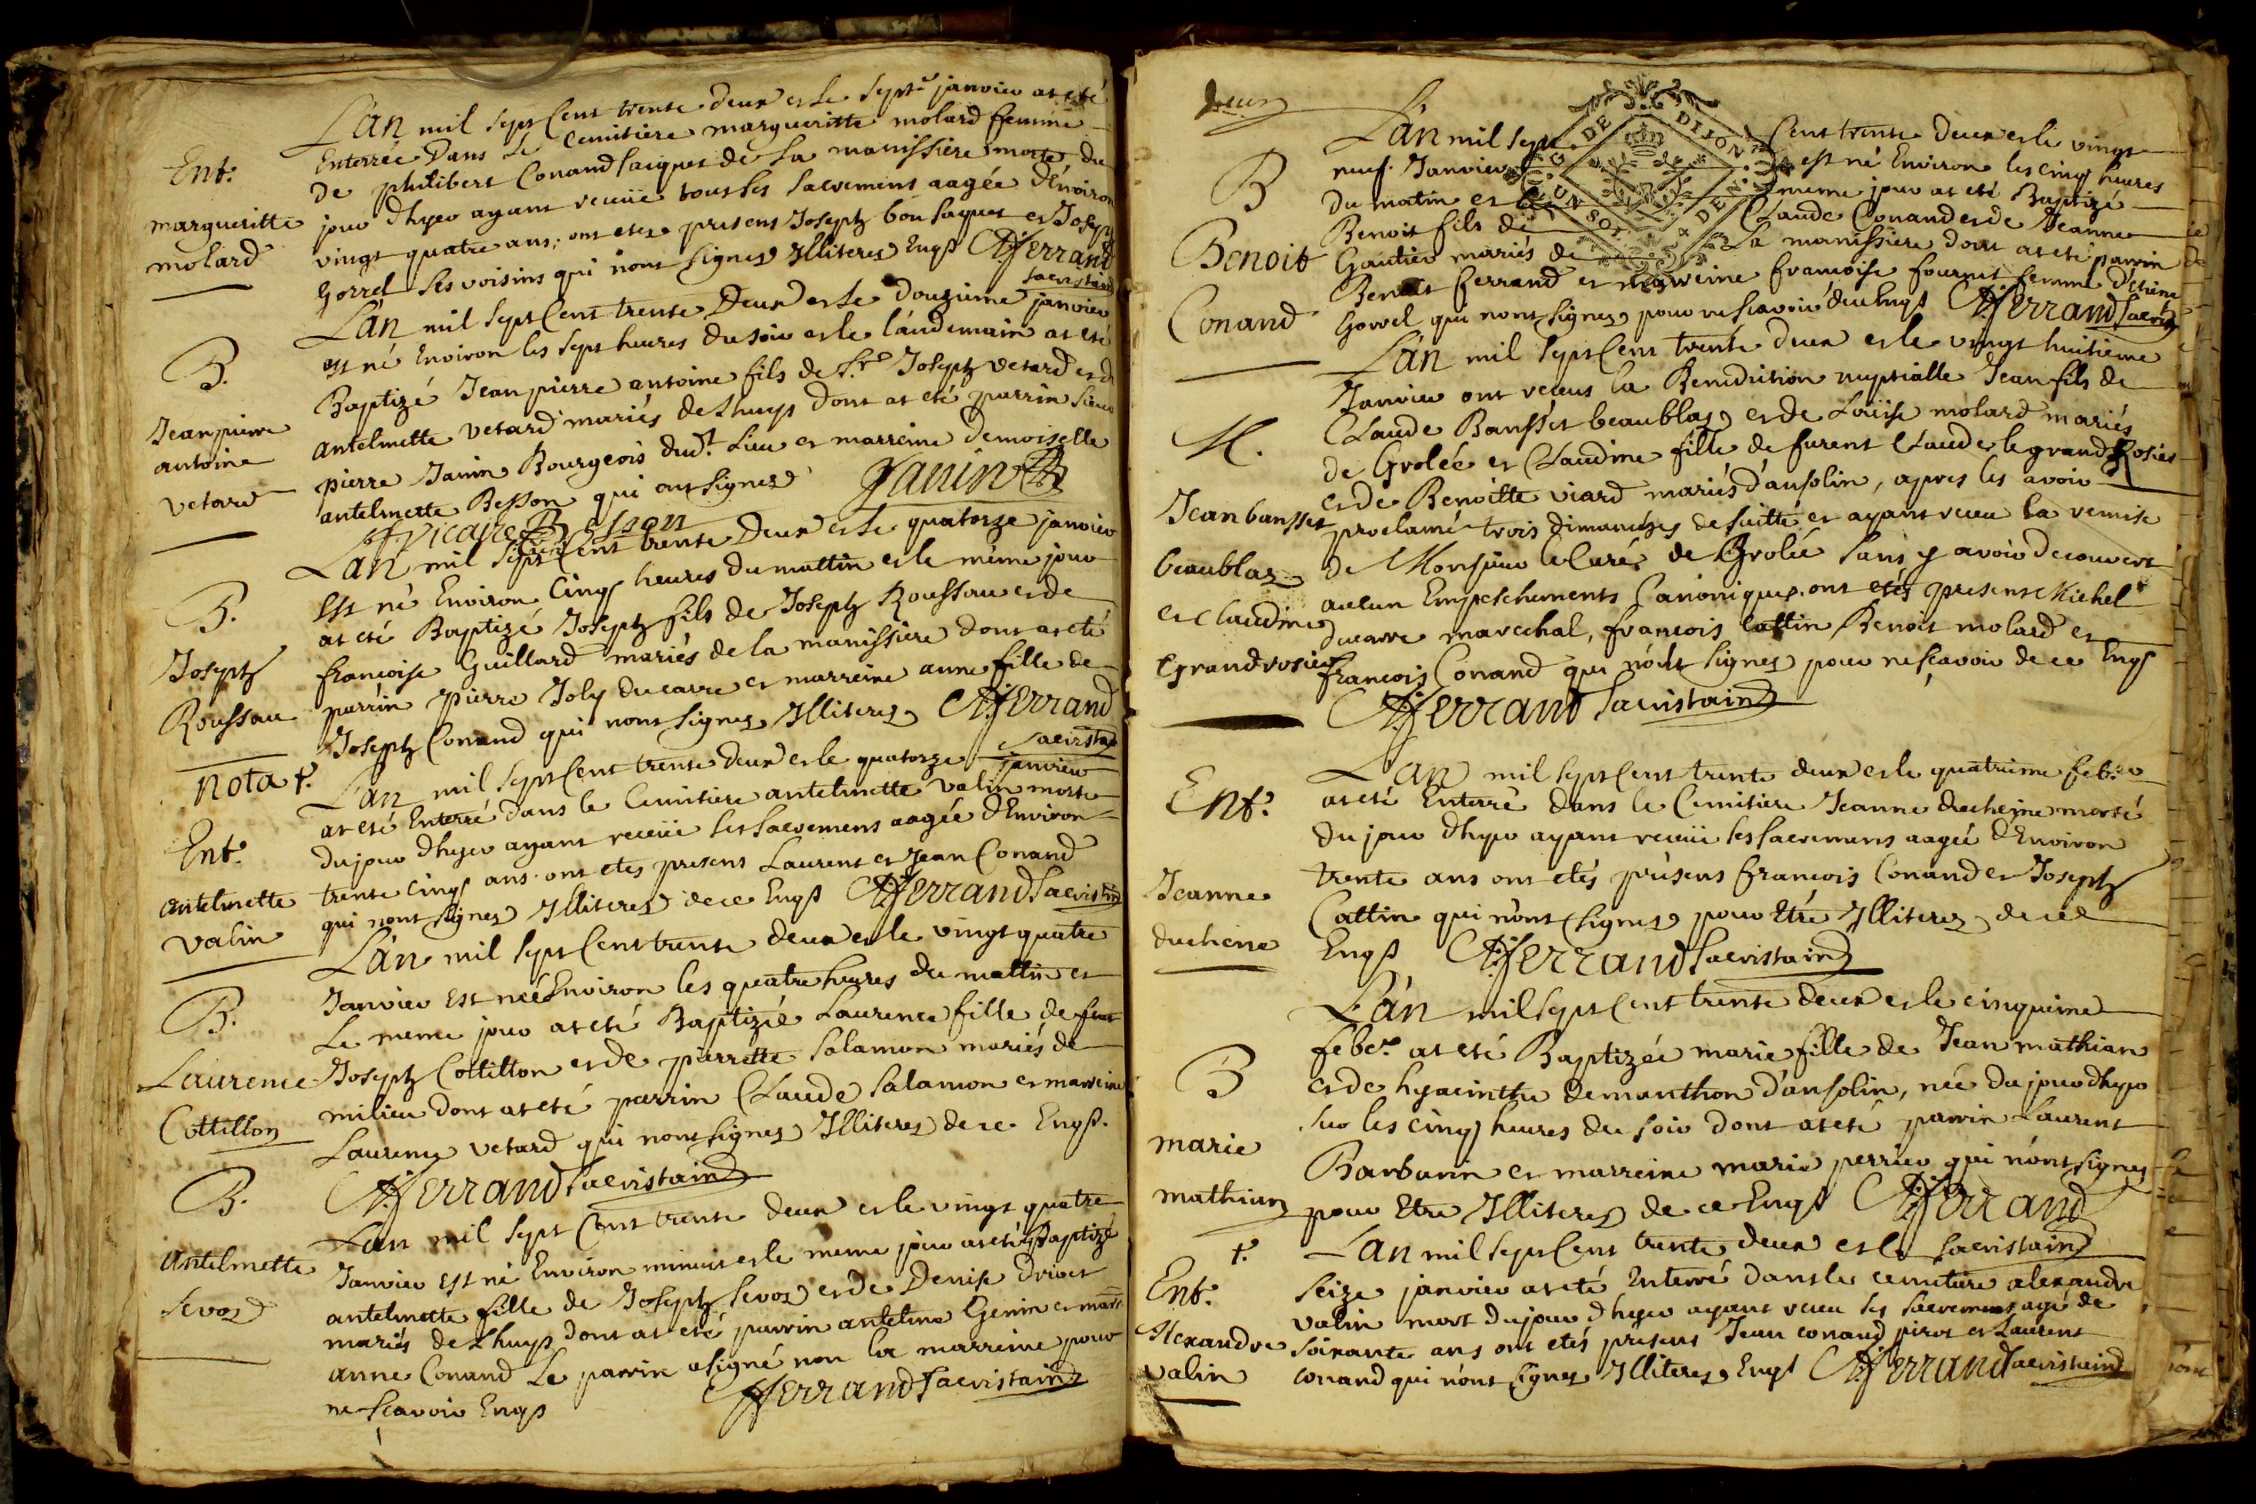 Ent.
margueritte
molard
L'an mil sept Cent trente deux et le septe janvier at eté
Enterrée Dans Le Cemitiere margueritte molard femme
de philibert Conand saiquet de La manissiere morte du
jour dhyer ayant receüe tout ses sacremens aagée d'Environ
vingt quatre ans, ont etes presens Joseph bon saquet et Joseph
Gorrel ses voisins qui nont signes Illiteres Enqs Ferrand
sacristain
B.
Jean pierre
antoine
vetard
L'an mil sept Cent trente Deux et le douzieme janvier
est né Environ les sept heures du soir et le landemain at eté
Baptizé Jean pierre antoine fils de Sr Joseph vetard et d
antelmette vetard mariés de Lhuys dont at eté parrin sieur
pierre Janin Bourgeois dudt Lieu et marreine demoiselle
antelmette Besson qui ont signes Janin
vicaire Besson
B.
Joseph
Roussau
L'an mil sept Cent trente Deux et le quatorze janvier
Est né Environ Cinq heures du mattin et le même jour
at eté Baptizé Joseph fils de Joseph Roussau et de
francoise Guillard mariés de la manissiere dont at eté
parrin pierre Joly ducarre et marreine anne fille de
Joseph Conand qui nont signes Illiteres Ferrand
sacristain
nota
Ent.
antelmette
valin
L'an mil sept Cent trente deux et le quatorze janvier
at eté Enterré dans le Cemitiere antelmette valin morte
du jour dhyer ayant receüe ses sacremens aagée d'Environ
trente cinq ans ont etes presens Laurent et Jean Conand
qui nont signes Illiteres de ce Enqs Ferrand sacristain
B.
Laurence
Cottillon
L'an mil sept Cent trente deux et le vingt quatre
Janvier Est neé Environ les quatre heures du mattin et
Le meme jour at eté Baptizée Laurence fille de feut
Joseph Cottillon et de pierrette salamon mariés de
milieu dont at eté parrin Claude salamon et marreine
Laurence vetard qui nont signes Illiteres de ce Enqs.
Ferrand sacristain
B.
antelmette
sevoz
L'an mil sept Cent trente deux et le vingt quatre
Janvier Est né Environ minuit et le meme jour at eté Baptizé
antelmette fille de Joseph sevoz et de Denise drivet
mariés de Lhuys dont at eté parrin antelme Genin et marr
anne Conand Le parrin a signé non la marreine pour
ne scavoir Enqs Ferrand sacristain
deux
G. DE DIJON
UN SOL 4 DEN.
B
Benoit
Conand
L'an mil sept Cent trente deux et le vingt
neuf Janvier est né Environ les cinq heures
du matin et le meme jour at eté Baptizé
Benoit fils de Claude Conand et de Jeanne
Gautier mariés de La manissiere dont at eté parrin
Benoit ferrand et marreine francoise fournet femme d'Etiene
Gorrel qui nont signes pour ne scavoir dece Enqs Ferrand sacris
M.
Jean bansset
beaublaz
et Claudine
grandrosier
L'an mil sept Cent trente deux et le vingt huitieme
Janvier ont receus la Benediction nuptialle Jean fils de
Claude Bansset beaublaz et de Loüise molard mariés
de Grolée et Claudine fille de furent Claude le grand Rosier
et de Benoitte viard mariés d'ansolin, apres les avoir
proclamé trois dimanches de suitte et ayant receu la remise
de Monsieur le Curé de Grolée sans y avoir decouvert
aucun Empeschements Canoniques. ont etés present Michel
ducarre marechal, francois Cattin Benoit molard et
francois Conand qui n'ont signes pour ne scavoir de ce Enqs
Ferrand sacristain
Ent.
Jeanne
duchene
L'an mil sept Cent trente deux et le quatrieme feb.er
at eté Enterré dans le Cemitiere Jeanne duchene morte
du jour dhyer ayant receüe ses sacremens aagée d'Environ
trente ans ont etés presens francois Conand et Joseph
Cattin qui n'ont signes pour Etre Illiteres de ce
Enqs Ferrand sacristain
B
marie
mathian
L'an mil sept Cent trente deux et le cinquieme
febe.r at eté Baptizée marie fille de Jean mathian
et de hyacinthe demanthon d'ansolin, née du jour dhyer
sur les cinq heures du soir dont at eté parrin Laurent
Barbarin et marreine marie perrier qui n'ont signes
pour Etre Illiteres de ce Enqs Ferrand
sacristain
Ent.
Alexandre
valin
L'an mil sept Cent trente deux et le
seize janvier at eté Enterré dans le cemitiere alexandre
valin mort du jour dhyer ayant receu ses sacremens agé de
soixante ans ont etés presens Jean conand pirot et Laurent
conand qui n'ont signes Illiteres Enqs Ferrand sacristain